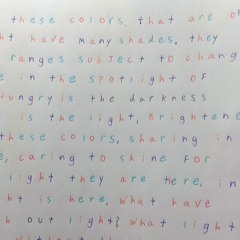 these colors, that are of
ht have many shades. they
ranges subject to chang
e in the spotlight of
Hungry is the darkness
is the light, Brightne
these colors, sharing in
e, caring to shine for
light they are here, in
ht is here. What have
h out light? What light